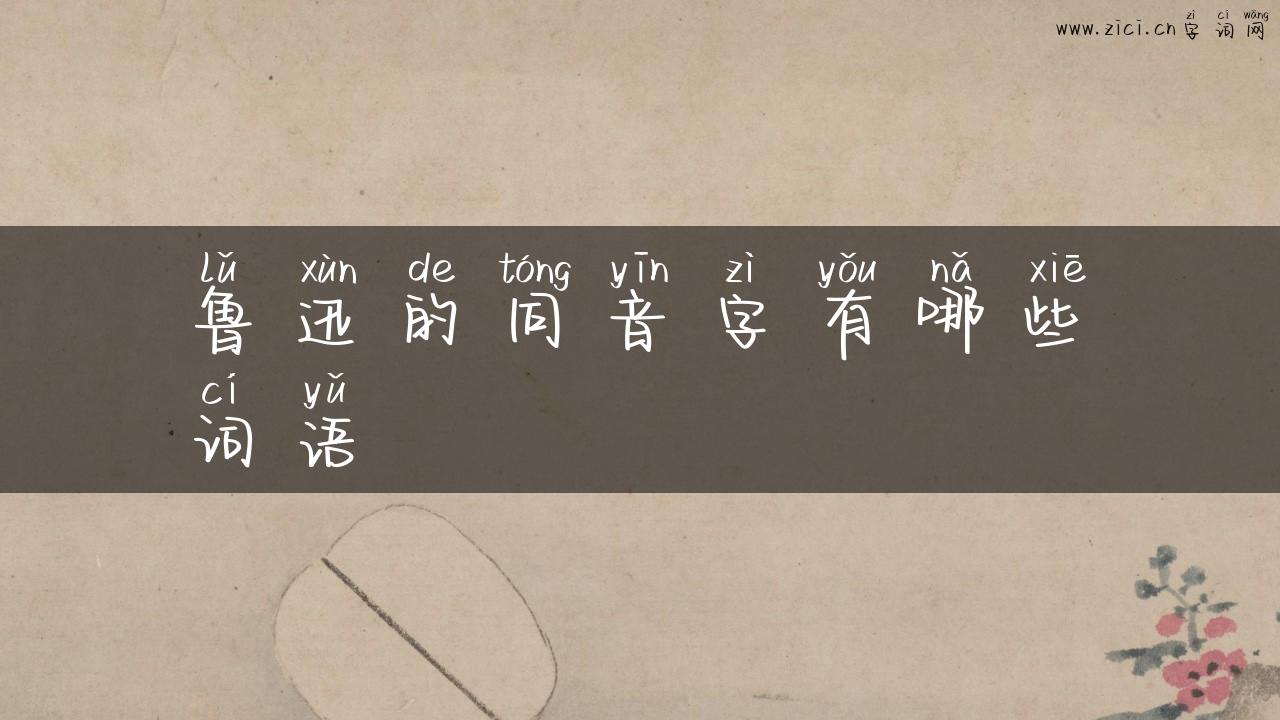 zì cí wǎng
www.zici.cn 字 词 网
lǔ xùn de tóng yīn zì yǒu nǎ xiē
鲁 迅 的 同 音 字 有 哪 些
cí yǔ
词 语